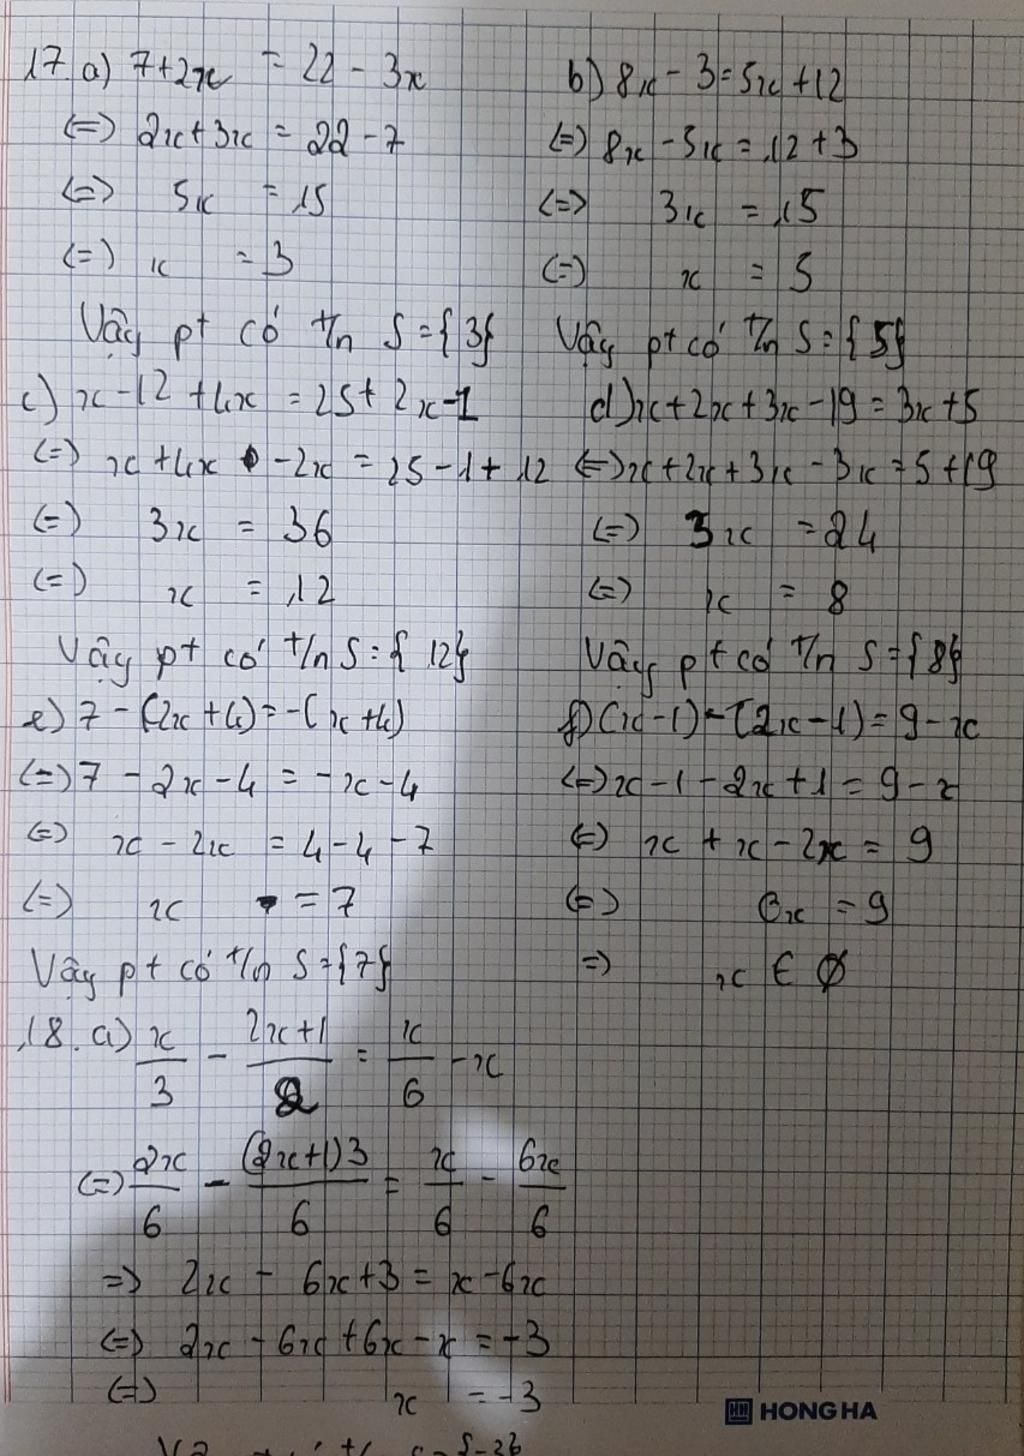 17. a) 7+2x = 22 - 3x
(=) 2x+3x = 22 - 7
(=) 5x = 15
(=) x = 3
Vậy pt có t/n S = {3}
b) 8x - 3 = 5x + 12
(=) 8x - 5x = 12 + 3
(=) 3x = 15
(=) x = 5
Vậy pt có t/n S = {5}
c) x - 12 + 4x = 25 + 2x - 1
(=) x + 4x - 2x = 25 - 1 + 12
(=) 3x = 36
(=) x = 12
Vậy pt có t/n S = {12}
d) x + 2x + 3x - 19 = 3x + 5
(=) x + 2x + 3x - 3x = 5 + 19
(=) 3x = 24
(=) x = 8
Vậy pt có t/n S = {8}
e) 7 - (2x + 4) = -(x + 4)
(=) 7 - 2x - 4 = -x - 4
(=) x - 2x = 4 - 4 - 7
(=) x = 7
Vậy pt có t/n S = {7}
f) (x - 1) - (2x - 1) = 9 - x
(=) x - 1 - 2x + 1 = 9 - x
(=) x + x - 2x = 9
(=) 0x = 9
=) x ∈ Ø
18. a) x/3 - (2x+1)/2 = x/6 - x
(=) 2x/6 - (2x+1)3/6 = x/6 - 6x/6
=) 2x - 6x + 3 = x - 6x
(=) 2x - 6x + 6x - x = -3
(=) x = -3
HONG HA